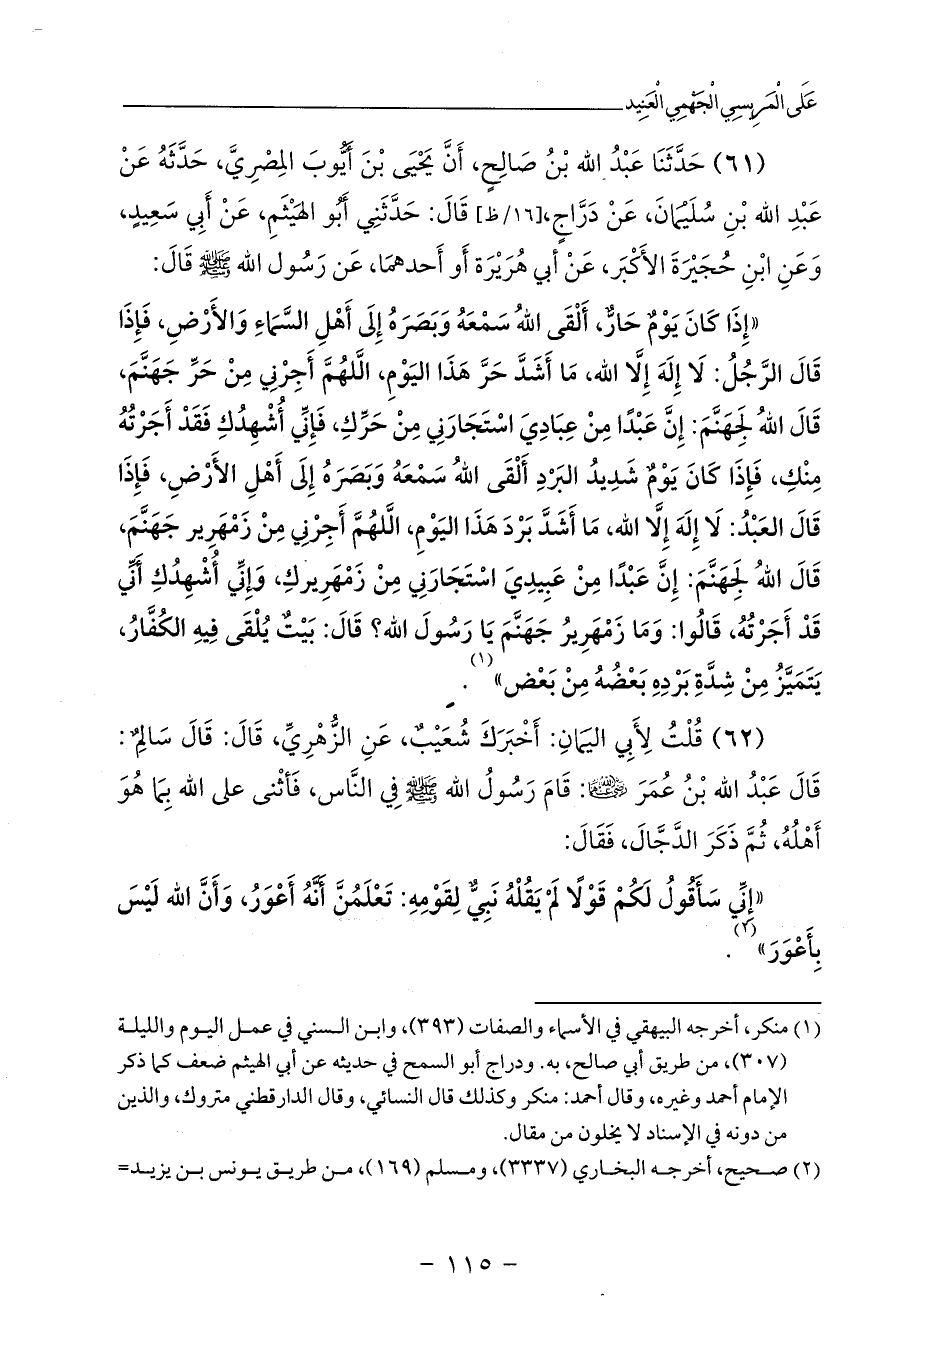 عَلَى الْمَرِيسِي الْجَهْمِي الْعَنِيد
(٦١) حَدَّثَنَا عَبْدُ الله بْنُ صَالِحٍ، أَنَّ يَحْيَى بْنَ أَيُّوبَ المِصْرِيَّ، حَدَّثَهُ عَنْ
عَبْدِ الله بْنِ سُلَيْمَانَ، عَنْ دَرَّاجٍ،[١٦/ظ] قَالَ: حَدَّثَنِي أَبُو الهَيْثَمِ، عَنْ أَبِي سَعِيدٍ،
وَعَنِ ابْنِ حُجَيْرَةَ الأَكْبَرِ، عَنْ أبي هُرَيْرَةَ أو أحدهمَا، عَن رَسُول الله ﷺ قَالَ:
«إِذَا كَانَ يَوْمٌ حَارٌّ، أَلْقَى اللهُ سَمْعَهُ وَبَصَرَهُ إِلَى أَهْلِ السَّمَاءِ وَالأَرْضِ، فَإِذَا
قَالَ الرَّجُلُ: لَا إِلَهَ إِلَّا الله، مَا أَشَدَّ حَرَّ هَذَا اليَوْمِ، اللَّهُمَّ أَجِرْنِي مِنْ حَرِّ جَهَنَّمَ،
قَالَ اللهُ لِجَهَنَّمَ: إِنَّ عَبْدًا مِنْ عِبَادِيَ اسْتَجَارَنِي مِنْ حَرِّكِ، فَإِنِّي أُشْهِدُكِ فَقَدْ أَجَرْتُهُ
مِنْكِ، فَإِذَا كَانَ يَوْمٌ شَدِيدُ البَرْدِ أَلْقَى اللهُ سَمْعَهُ وَبَصَرَهُ إِلَى أَهْلِ الأَرْضِ، فَإِذَا
قَالَ العَبْدُ: لَا إِلَهَ إِلَّا الله، مَا أَشَدَّ بَرْدَ هَذَا اليَوْمِ، اللَّهُمَّ أَجِرْنِي مِنْ زَمْهَرِيرِ جَهَنَّمَ،
قَالَ اللهُ لِجَهَنَّمَ: إِنَّ عَبْدًا مِنْ عَبِيدِيَ اسْتَجَارَنِي مِنْ زَمْهَرِيرِكِ، وَإِنِّي أُشْهِدُكِ أَنِّي
قَدْ أَجَرْتُهُ، قَالُوا: وَمَا زَمْهَرِيرُ جَهَنَّمَ يَا رَسُولَ الله؟ قَالَ: بَيْتٌ يُلْقَى فِيهِ الكُفَّارُ،
يَتَمَيَّزُ مِنْ شِدَّةِ بَرْدِهِ بَعْضُهُ مِنْ بَعْضٍ»(١).
(٦٢) قُلْتُ لِأَبِي اليَمَانِ: أَخْبَرَكَ شُعَيْبٌ، عَنِ الزُّهْرِيِّ، قَالَ: قَالَ سَالِمٌ:
قَالَ عَبْدُ الله بْنُ عُمَرَ رضي الله عنهما: قَامَ رَسُولُ الله ﷺ فِي النَّاسِ، فَأَثْنى على الله بِمَا هُوَ
أَهْلُهُ، ثُمَّ ذَكَرَ الدَّجَّالَ، فَقَالَ:
«إِنِّي سَأَقُولُ لَكُمْ قَوْلًا لَمْ يَقُلْهُ نَبِيٌّ لِقَوْمِهِ: تَعْلَمُنَّ أَنَّهُ أَعْوَرُ، وَأَنَّ الله لَيْسَ
بِأَعْوَرَ»(٢).
(١) منكر، أخرجه البيهقي في الأسماء والصفات (٣٩٣)، وابن السني في عمل اليوم والليلة
(٣٠٧)، من طريق أبي صالح، به. ودراج أبو السمح في حديثه عن أبي الهيثم ضعف كما ذكر
الإمام أحمد وغيره، وقال أحمد: منكر وكذلك قال النسائي، وقال الدارقطني متروك، والذين
من دونه في الإسناد لا يخلون من مقال.
(٢) صحيح، أخرجه البخاري (٣٣٣٧)، ومسلم (١٦٩)، من طريق يونس بن يزيد=
- ١١٥ -